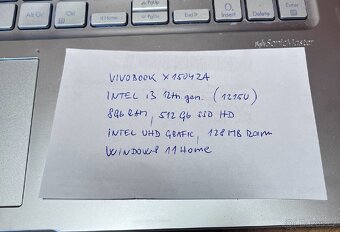 Alt
Ctrl
PgUp
PgDn
O
Insert
Delete
SonicMaster
VIVOBOOK X1504ZA
INTEL i3 12th gen. (1215U)
8Gb RAM, 512 Gb SSD HD
INTEL UHD GRAFIC, 128 MB Dram
WINDOWS 11 Home